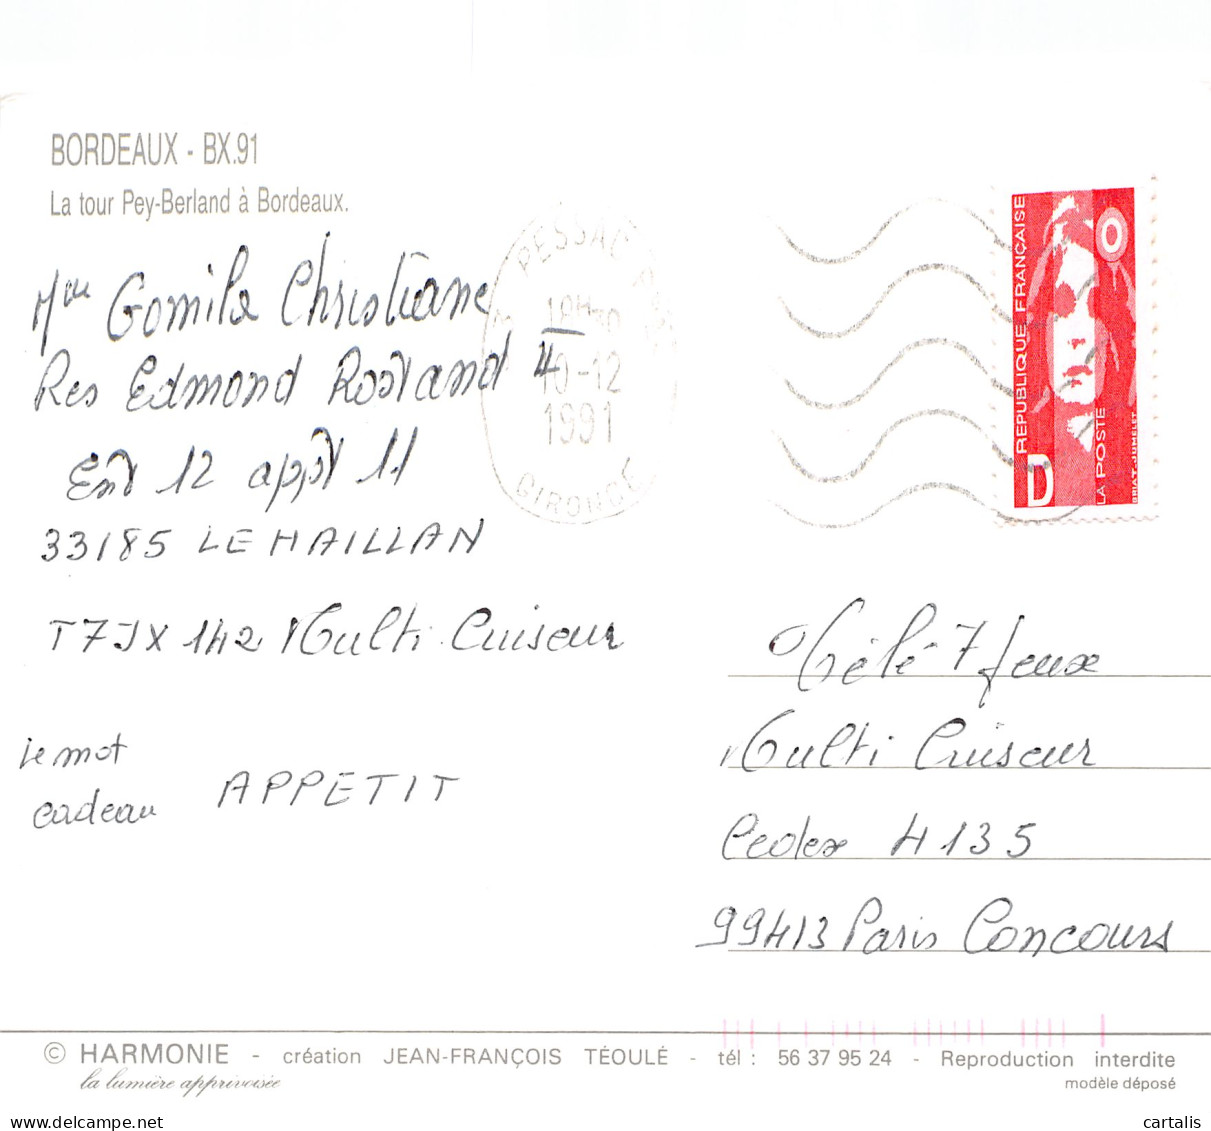 BORDEAUX - BX.91
La tour Pey-Berland à Bordeaux.
Mme Gomila Christiane
Res Edmond Rostand 4
Ent 12 appt 11
33185 LE HAILLAN
T7JX 142 Multi Cuiseur
le mot
cadeau APPETIT
PESSAC
18H30
10-12
1991
GIRONDE
RÉPUBLIQUE FRANÇAISE
LA POSTE
BRIAT-JUMELET
D
Télé 7 Jeux
Multi Cuiseur
Cedex 4135
99413 Paris Concours
© HARMONIE - création JEAN-FRANÇOIS TÉOULÉ - tél : 56 37 95 24 - Reproduction interdite
la lumière apprivoisée
modèle déposé
cartalis